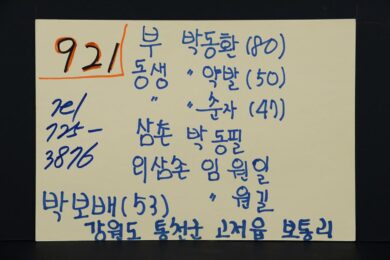 921
부 박동환 (80)
동생 〃 약발 (50)
〃 〃 순자 (47)
Tel
725-
3876
삼촌 박동필
외삼촌 임원일
〃 원길
박보배 (53)
강원도 통천군 고저읍 보통리